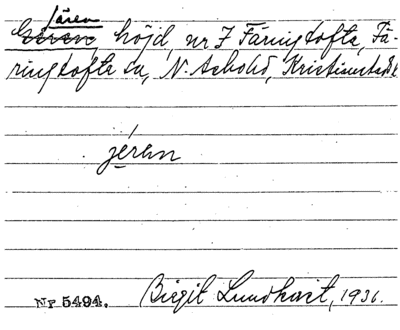 Jären
Geren, höjd, nr 7 Färingtofta, Fä-
ringtofta sn, N. Åsbohd, Kristianstads l.
jéren
Nr 5494. Birgit Lundkvist, 1936.